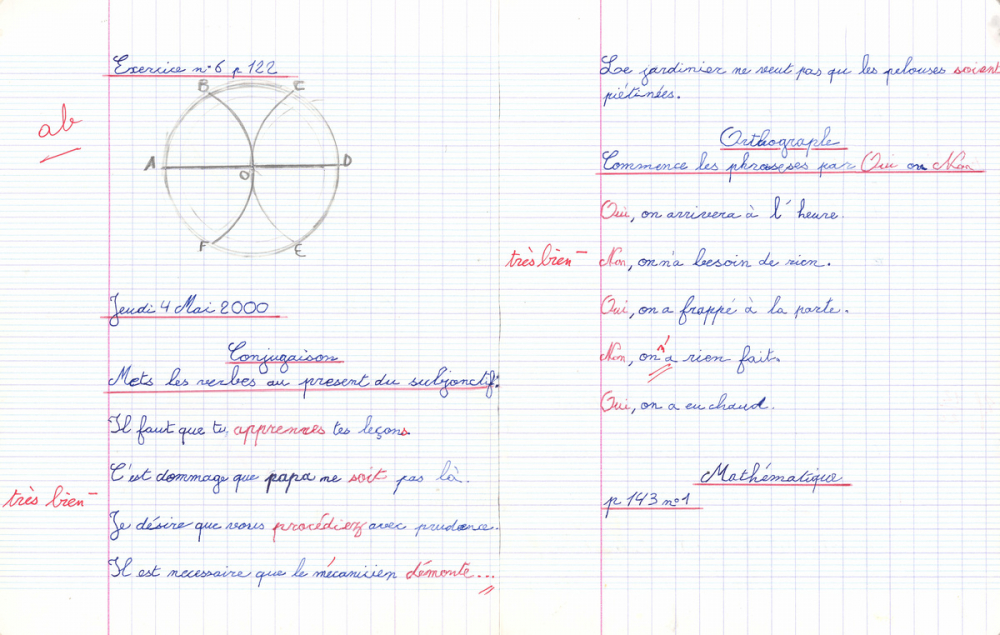 Exercice n°6 p 122
ab
B C
A O D
F E
Jeudi 4 Mai 2000
Conjugaison
Mets les verbes au present du subjonctif:
Il faut que tu apprennes tes leçons
C'est dommage que papa ne soit pas là.
très bien
Je désire que vous procédiez avec prudence.
Il est necessaire que le mécanicien démonte...
Le jardinier ne veut pas que les pelouses soient
piétinées.
Orthographe
Commence les phrases par Oui ou Non
Oui, on arrivera à l'heure.
très bien
Non, on n'a besoin de rien.
Oui, on a frappé à la porte.
Non, on n'a rien fait.
Oui, on a eu chaud.
Mathématique
p 143 n°1